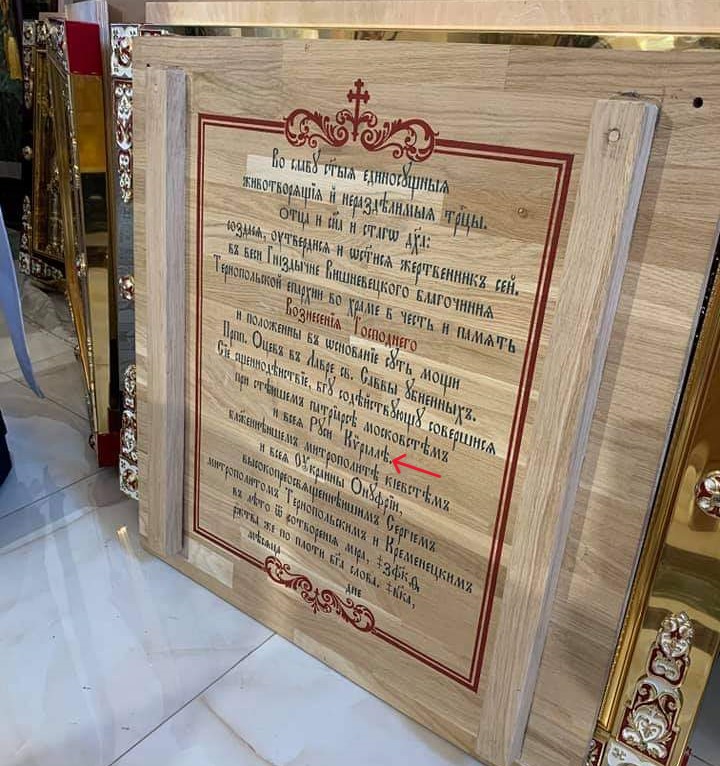 Во славу ст҃ыѧ единосꙋщныѧ
животворѧщїѧ и нераздѣлимыѧ трⷪ҇цы.
Отца и сн҃а и ст҃агѡ дх҃а:
создасѧ, оутвердисѧ и ѡст҃исѧ жертвенникъ сей.
въ веси Гнѣздычне Вишневецкого благочинїѧ
Тернопольской епархїи во храме в честь и память
Вознесенїѧ Господнего
и положенны въ ѡснованїе сꙋть мощи
Прпп. Оцевъ въ Лавре св. Саввы ꙋбиенныхъ.
Сїе сщ҃еннодѣйствїе, бг҃ꙋ содѣйствꙋющꙋ совершисѧ
при ст҃ѣйшемъ патрїарсѣ московстѣмъ
и всеѧ Рꙋси Кѷриллѣ,
блаженнѣйшемъ митрополитѣ кїевстѣмъ
и всеѧ Оукраины Онꙋфрїи,
высокопреосвѧщеннѣйшимъ Сергїемъ
митрополитомъ Тернопольскимъ и Кременецкимъ
въ лѣто ѿ сотворенїѧ мїра, ҂зф҃кѳ,
рж҃тва же по плоти бг҃а слова. ҂вк҃а,
мѣсѧца дне